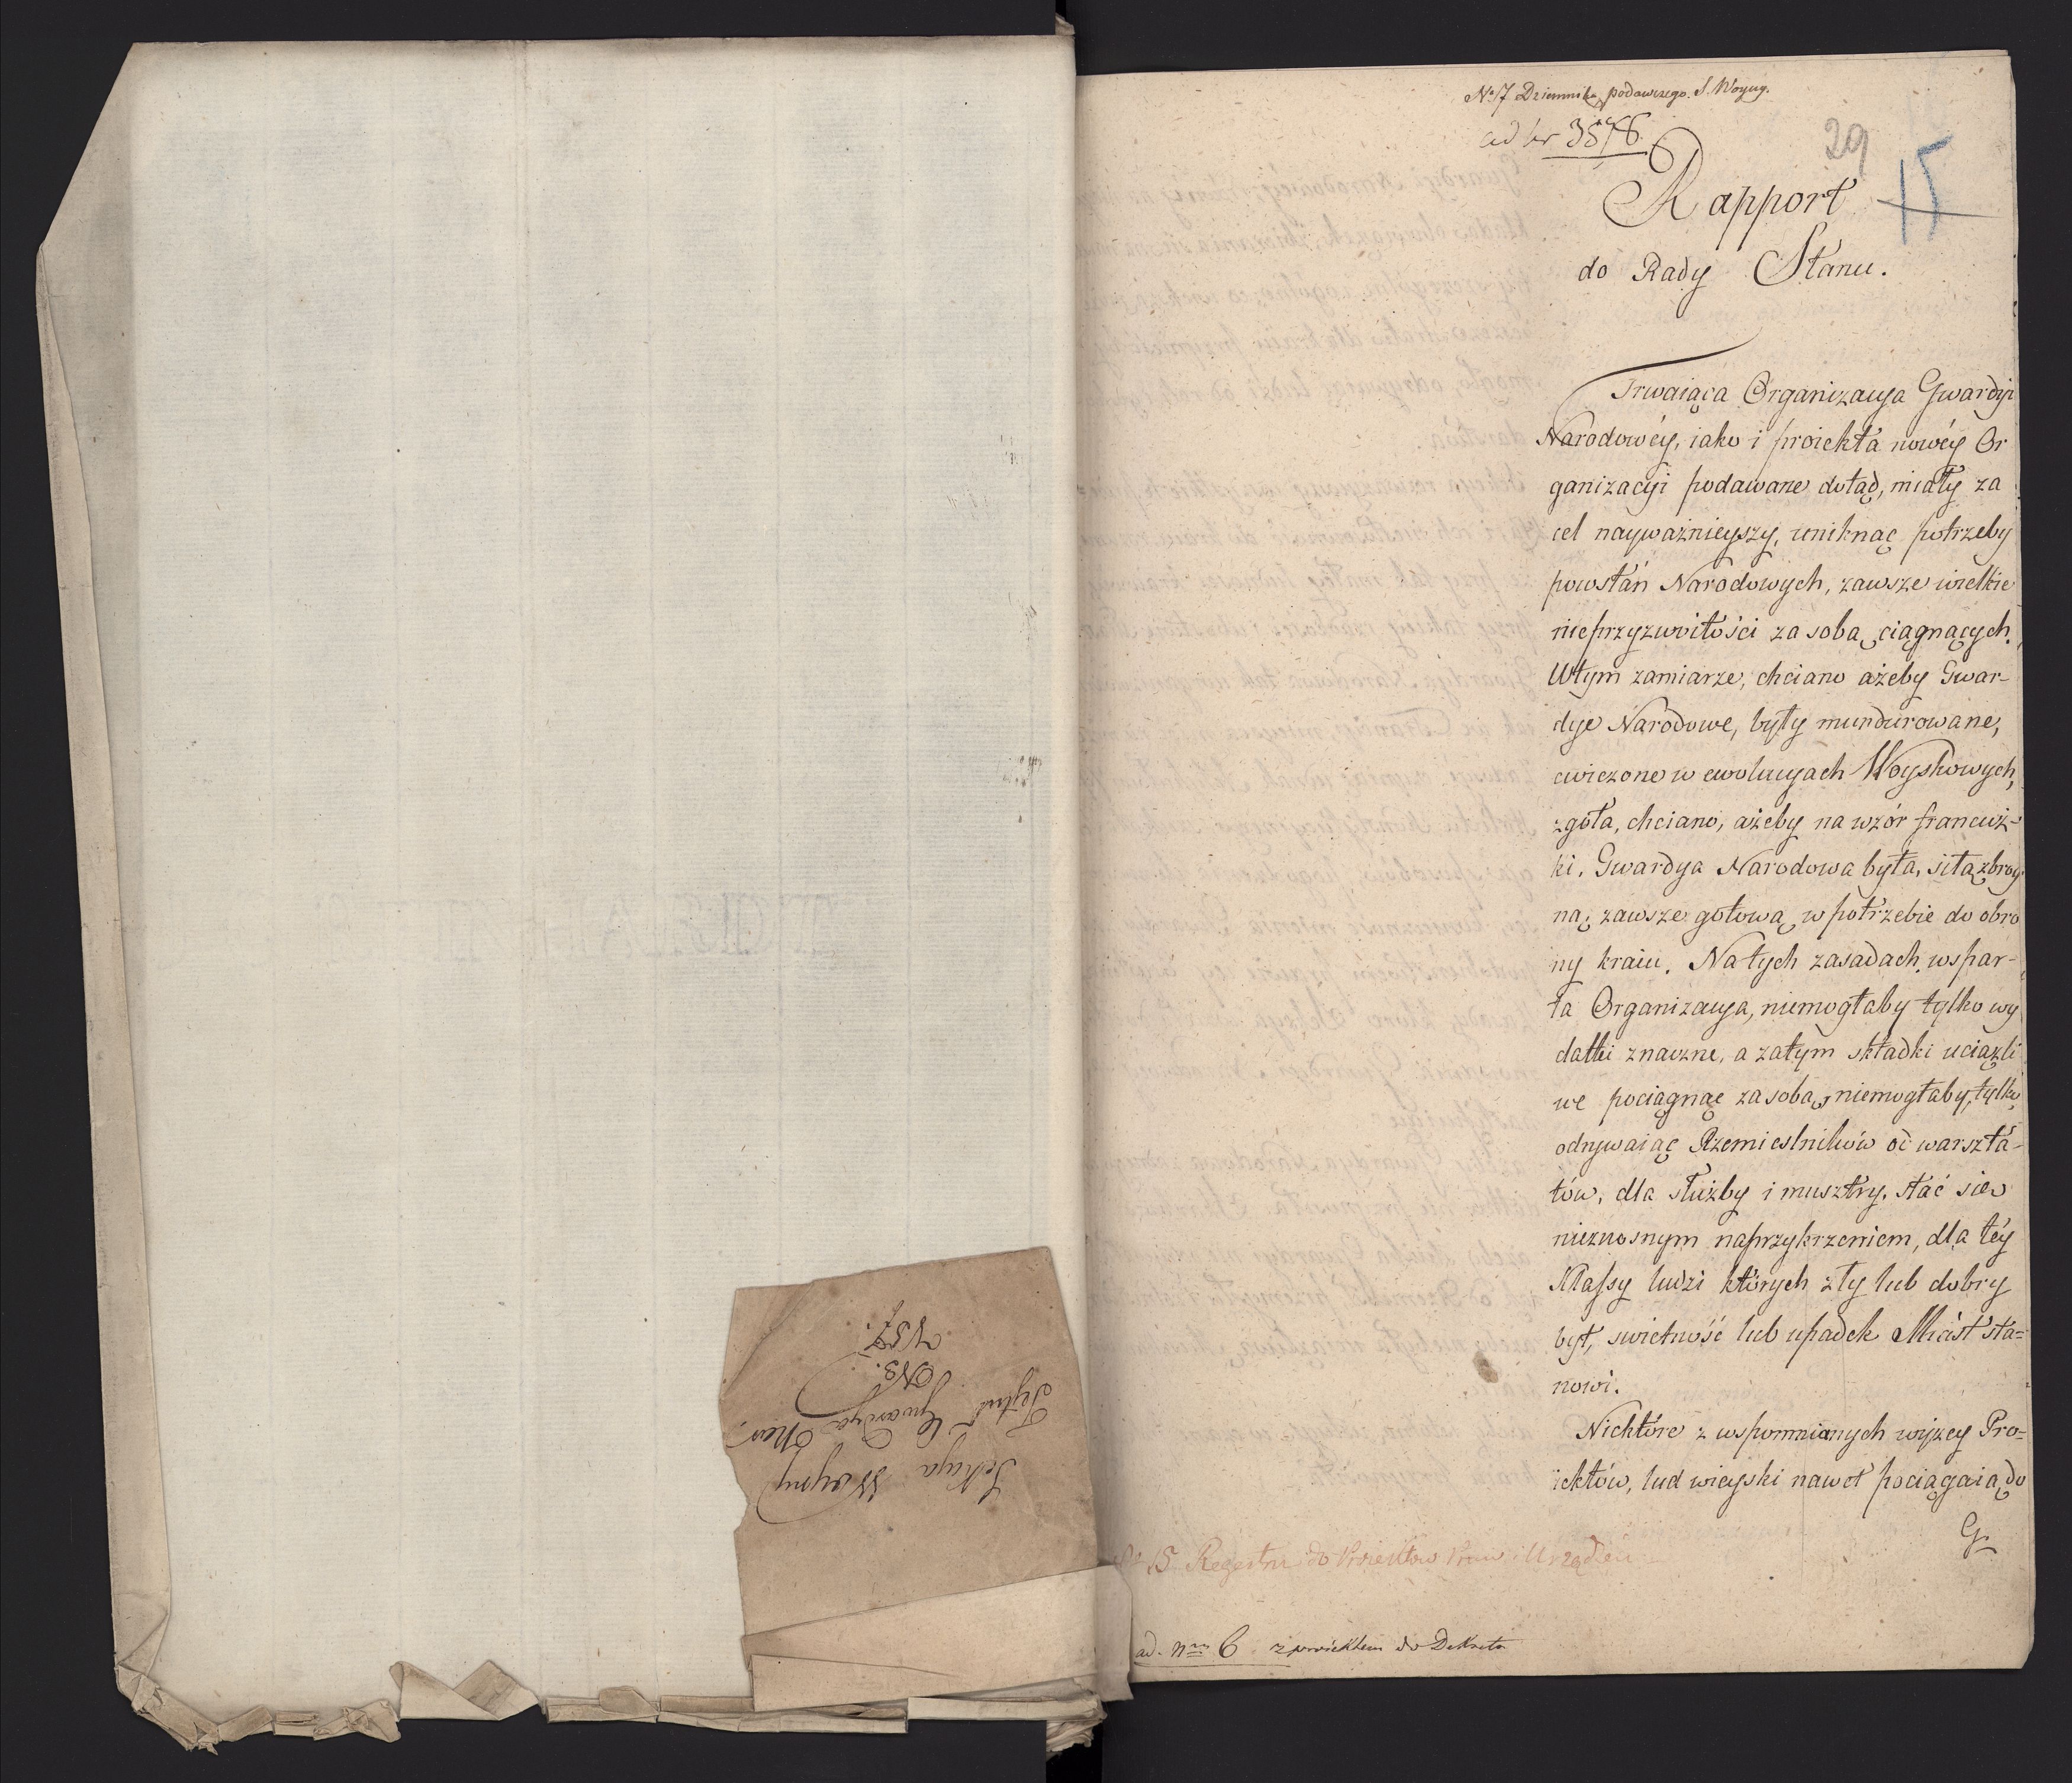 Sekcya Woyny
Tytuł Gwardya Nar.
N 3.
N 57.
N. 17 Dziennika podawczego. S. Woyny.
ad nr 3578.
29
15
Rapport
do Rady Stanu.
Trwaiąca Organizacya Gwardyi
Narodowéy, iako i proiekta nowéy Or
ganizacyi podawane dotąd, miały za
cel nayważnieyszy, uniknąć potrzeby
powstań Narodowych, zawsze wielkie
nieprzyzwoitości za sobą ciągnących.
W tym zamiarze, chciano ażeby Gwar-
dye Narodowe, były mundurowane,
cwiczone w ewolucyach Woyskowych,
zgoła, chciano, ażeby na wzór francuz-
ki, Gwardya Narodowa była, siłą zbroy
ną; zawsze gotową w potrzebie do obro
ny kraiu. Na tych zasadach wspar-
ta Organizacya, niemogłaby tylko wy
datki znaczne, a zatym składki uciążli
we pociągnąć za sobą, niemogłaby, tylko
odrywaiąc Rzemieslników od warszta-
tów, dla służby i musztry, stać się
nieznosnym naprzykrzeniem, dla téy
Klassy ludzi których zły lub dobry
byt, swietność lub upadek Miast sta=
nowi.
Niektóre z wspomnianych wyzey Pro=
iektów, lud wieyski nawet pociągaią do
G
N. 15 Regestru do Proiektow Praw i Urządzeń
ad. nrm 6 z proiektem do Dekretu